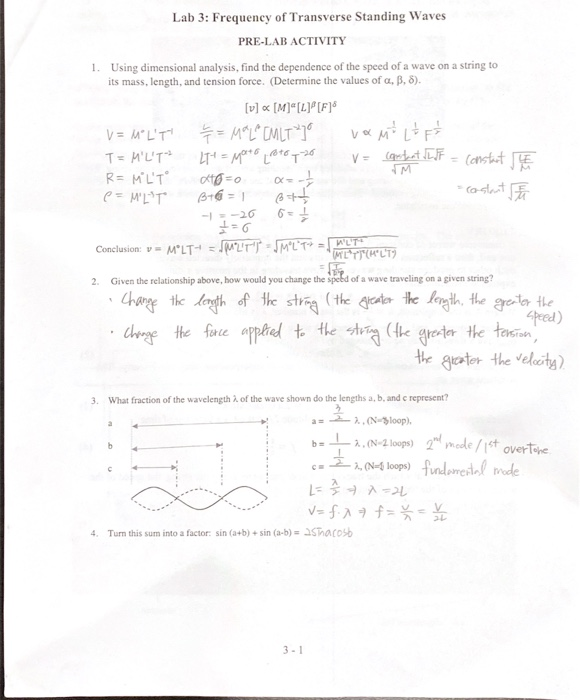 Lab 3: Frequency of Transverse Standing Waves
PRE-LAB ACTIVITY
1. Using dimensional analysis, find the dependence of the speed of a wave on a string to
its mass, length, and tension force. (Determine the values of α, β, δ).
[v] ∝ [M]^α[L]^β[F]^δ
V = M⁰L¹T⁻¹
T = M¹L¹T⁻²
R = M⁰L¹T⁰
ρ = M¹L⁻¹T⁰
L/T = M^αL^β[MLT⁻²]^δ
LT⁻¹ = M^(α+δ) L^(β+δ) T^(-2δ)
α+δ=0
β+δ=1
-1 = -2δ
1/2 = δ
α = -1/2
β = +1/2
δ = 1/2
V ∝ M^(-1/2) L^(1/2) F^(1/2)
V = constant √L√F / √M = constant √(LF/M)
= constant
Conclusion: v = M⁰LT⁻¹ =
2. Given the relationship above, how would you change the speed of a wave traveling on a given string?
· Change the length of the string (the greater the length, the greater the
speed)
· Change the force applied to the string (the greater the tension,
the greater the velocity)
3. What fraction of the wavelength λ of the wave shown do the lengths a, b, and c represent?
a
b
c
a = 3/2 λ, (N=3 loop),
b = 1 λ, (N=2 loops) 2nd mode / 1st overtone
c = 1/2 λ, (N=1 loops) fundamental mode
L = λ/2 ⇒ λ = 2L
V = f·λ ⇒ f = V/λ = V/2L
4. Turn this sum into a factor: sin (a+b) + sin (a-b) = 2sinacosb
3 - 1